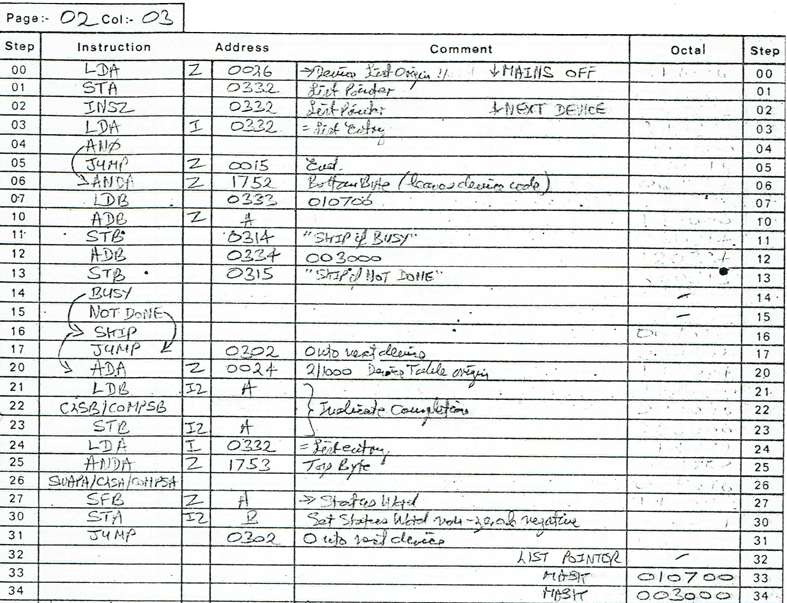 Page:- 02 Col:- 03
Step Instruction Address Comment Octal Step
00 LDA Z 0026 → Device List Origin !! ↓MAINS OFF 00
01 STA 0332 List Pointer 01
02 INSZ 0332 List Pointer ↓NEXT DEVICE 02
03 LDA I 0332 = List Entry 03
04 04
05 JUMP Z 0015 05
06 ANDA Z 1752 Bottom Byte (leaves device code) 06
07 LDB 0333 010700 07
10 ADB Z A 10
11 STB 0314 "SKIP if BUSY" 11
12 ADB 0334 003000 12
13 STB 0315 "SKIP if NOT DONE" 13
14 BUSY - 14
15 NOT DONE - 15
16 SKIP 16
17 JUMP 0302 Onto next device 17
20 ADA Z 0024 Device Table origin 20
21 LDB I2 A 21
22 CASB/COMPSB Indicate Completion 22
23 STB I2 A 23
24 LDA I 0332 = List entry 24
25 ANDA Z 1753 Top Byte 25
26 SWAPA/CASA/COMPSA 26
27 SFB Z A → Status Word 27
30 STA I2 B Set Status Word non-zero & negative 30
31 JUMP 0302 Onto next device 31
32 LIST POINTER - 32
33 MASK 010700 33
34 MASK 003000 34